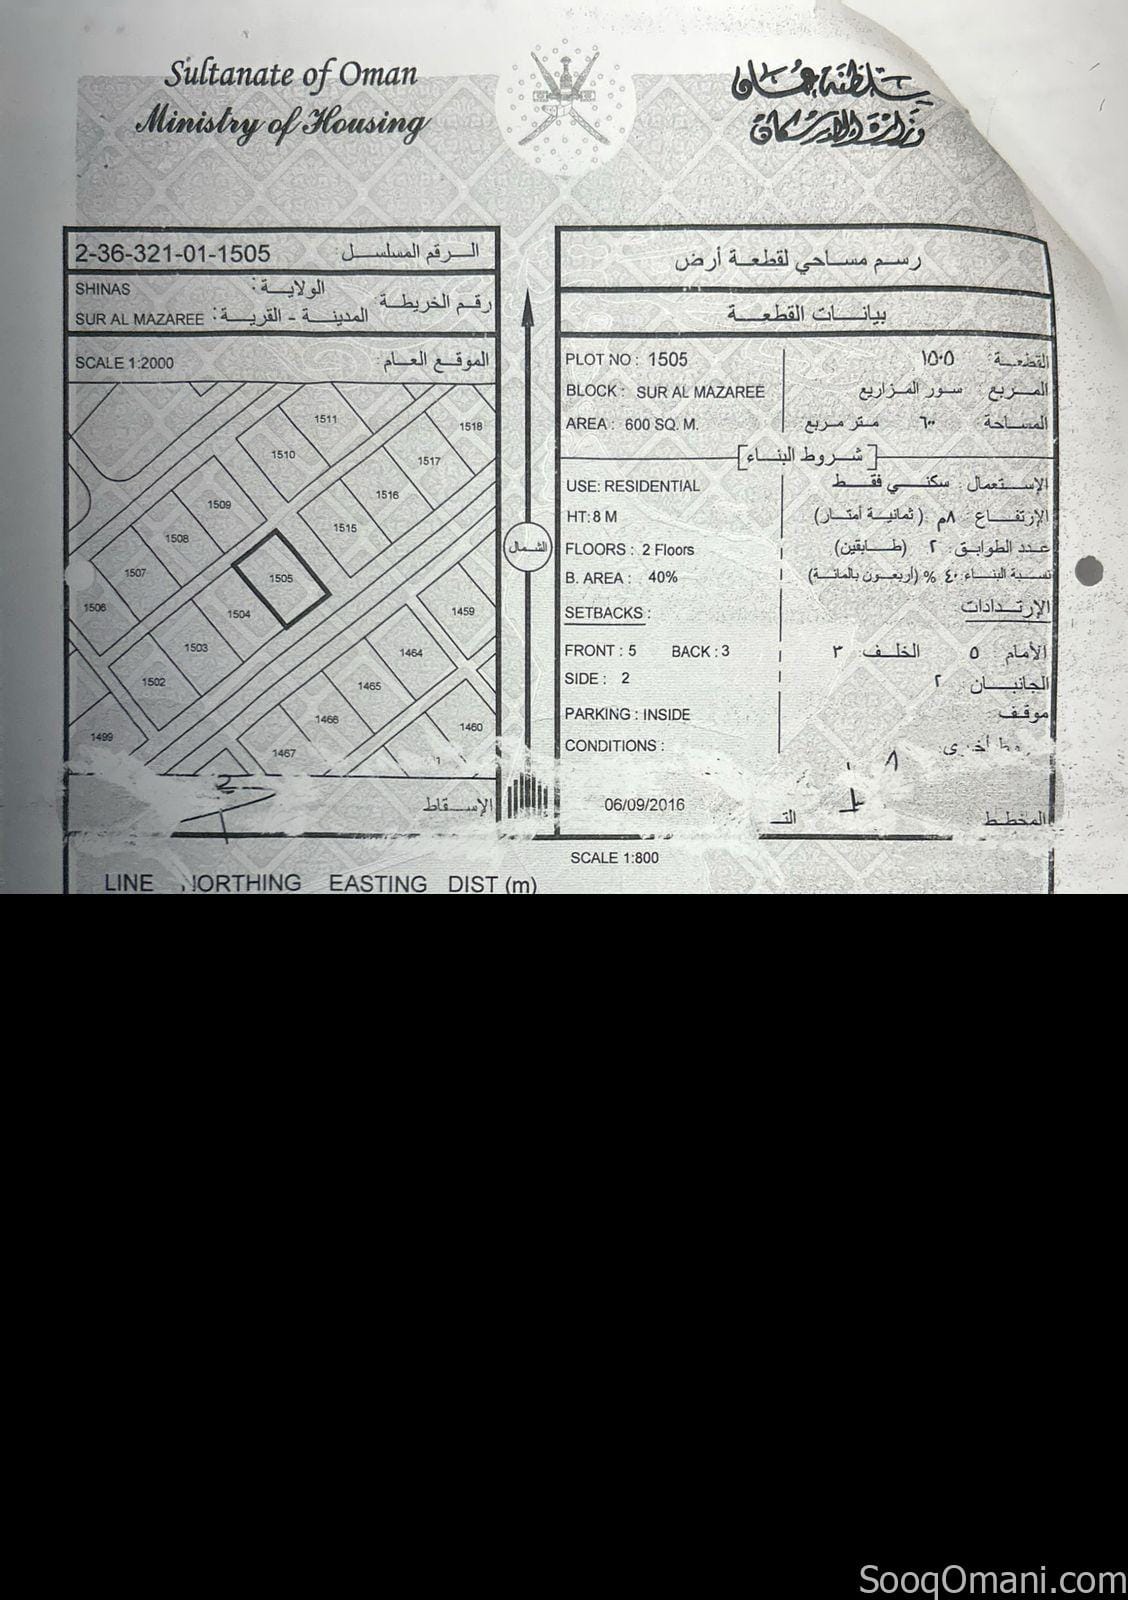 Sultanate of Oman
Ministry of Housing
سلطنة عمان
وزارة الإسكان
2-36-321-01-1505 الرقم المسلسل:
SHINAS الولاية:
رقم الخريطة
SUR AL MAZAREE المدينة - القرية:
SCALE 1:2000 الموقع العام:
1511
1518
1510
1517
1509
1516
1508
1515
1507
1505
1506
1504
1459
1503
1464
1502
1465
1466
1460
1499
1467
الإسقاط
الشمال
رسم مساحي لقطعة أرض
بيانات القطعة
PLOT NO : 1505 القطعة: ١٥٠٥
BLOCK : SUR AL MAZAREE المربع سور المزاريع
AREA : 600 SQ. M. المساحة ٦٠٠ متر مربع
[شروط البناء]
USE: RESIDENTIAL الإستعمال: سكني فقط
HT: 8 M الإرتفاع: ٨م (ثمانية أمتار)
FLOORS : 2 Floors عدد الطوابق: ٢ (طابقين)
B. AREA : 40% نسبة البناء: ٤٠ % (أربعون بالمائة)
SETBACKS : الإرتدادات
FRONT : 5 BACK : 3 الأمام ٥ الخلف: ٣
SIDE : 2 الجانبان ٢
PARKING : INSIDE موقف
CONDITIONS :
06/09/2016
المخطط
SCALE 1:800
LINE NORTHING EASTING DIST (m)
SooqOmani.com